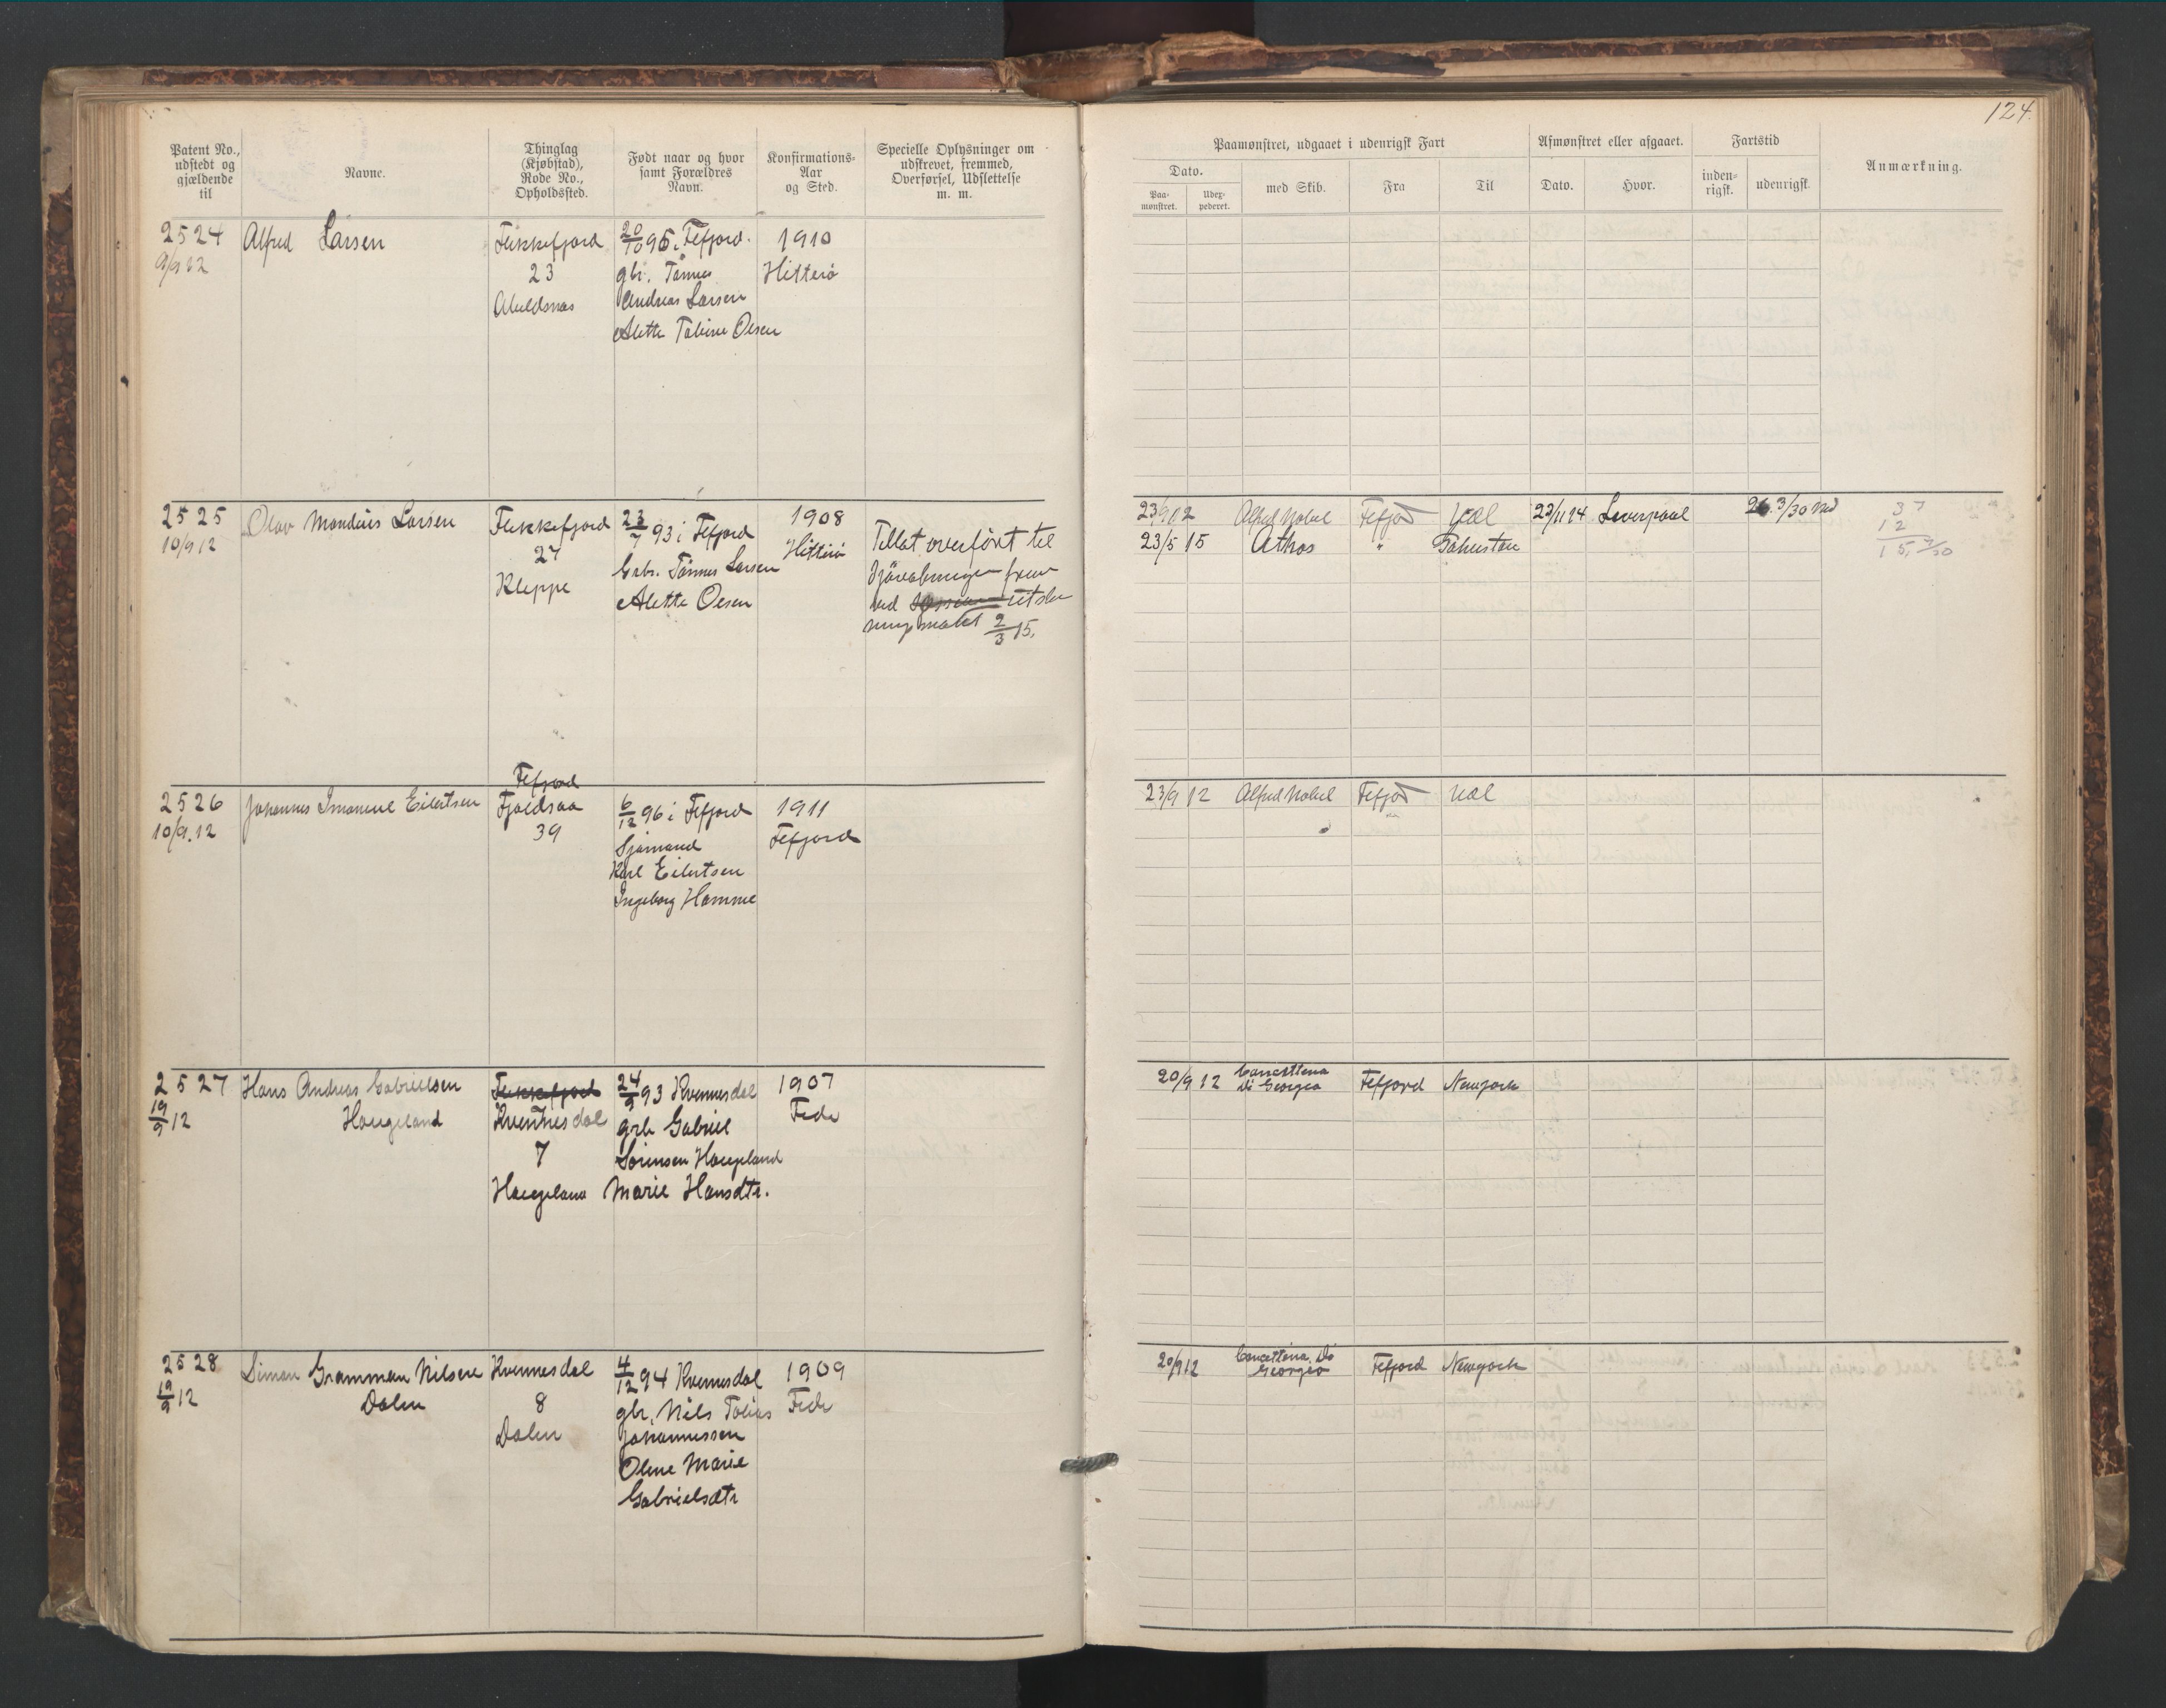 124
Patent No., udstedt og gjældende til
Navne.
Thinglag (Kjøbstad), Rode No., Opholdssted.
Født naar og hvor samt Forældres Navn.
Konfirmations-Aar og Sted.
Specielle Oplysninger om udskrevet, fremmed, Overførsel, Udslettelse m. m.
Paamønstret, udgaaet i udenrigsk Fart
Dato.
Paa-mønstret.
Udex-pederet.
med Skib.
Fra
Til
Afmønstret eller afgaaet.
Dato.
Hvor.
Fartstid
inden-rigsk.
udenrigsk.
Anmærkning.
2524
9/9 12
Alfred Larsen
Flekkefjord
23
Abeldsnas
20/10 95 i Fefjord.
gbr. Tønnes
Andreas Larsen
Alette Tobine Olsen
1910
Hitterø
2525
10/9 12
Olav Mandius Larsen
Flekkefjord
27
Kleppe
23/7 93 i Fefjord
Gbr. Tønnes Larsen
Alette Olsen
1908
Hitterø
Tillat overført til
ved
2/3 15.
23/9 12 Alfred Nobel Fefjord 23/11 14 Liverpool 26. 3/30
23/5 15 Athos "
37
12
2526
10/9.12
Johannes Imanuel Eilertsen
Fefjord
Fjeldsaa
39
6/12 96 i Fefjord
Sjømand
Karl Eilertsen
Ingeborg Hamme
1911
Fefjord
23/9 12 Alfred Nobel Fefjord
2527
19/9 12
Hans Andreas Gabrielsen
Haugeland
Flekkefjord
Kvennesdal
7
Haugeland
24/9 93 Kvennesdal
grb Gabriel
Sørensen Haugeland
Marie Hansdtr.
1907
Fede
20/9 12 Concettina
Di Georgio Fefjord Newyork
2528
19/9 12
Simon Gramman Nilsen
Dalen
Kvennesdal
8
Dalen
4/12 94 Kvennesdal
gbr. Nils Tobias
Johannessen
Oline Marie
Gabrielsdtr
1909
Fede
20/9 12 Concettina Di
Georgio Fefjord Newyork